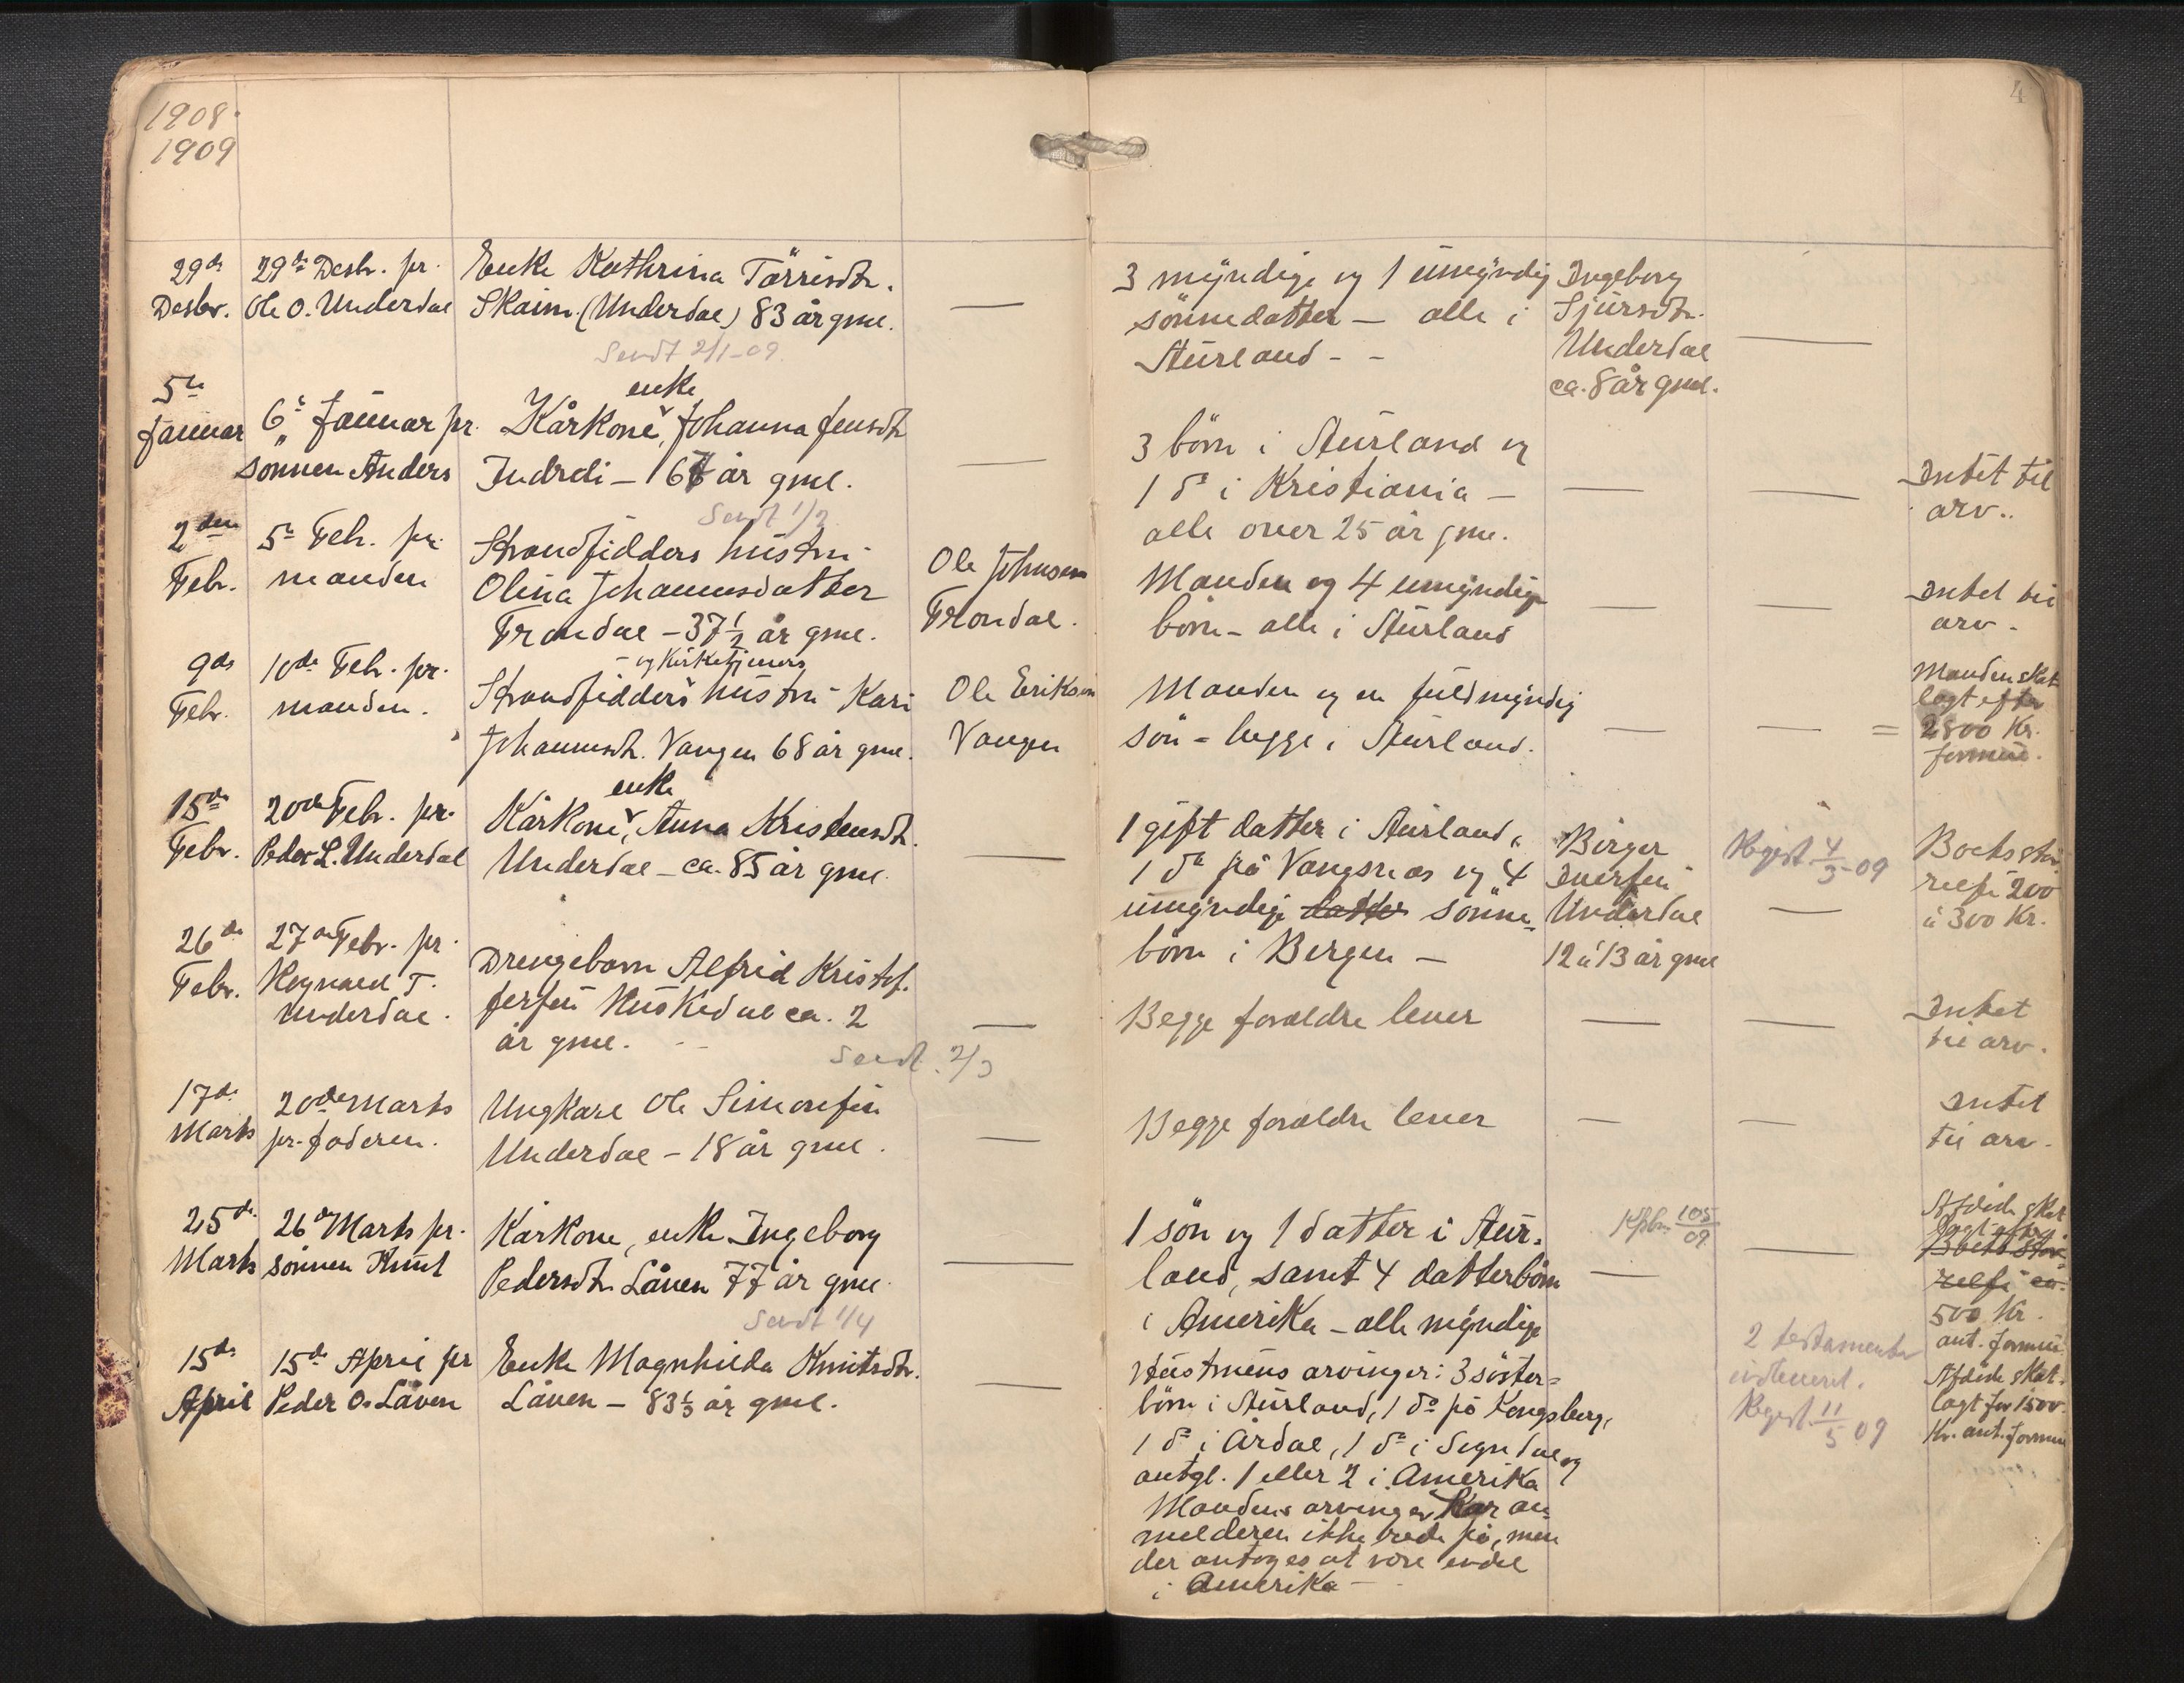 1908.
1909
4
29de Desbr.
29de Desbr. pr. Ole O. Underdal
Enke Kathrina Tørrisdtr.
Skaim (Underdal) 83 år gml.
—
3 myndige og 1 umyndig
sønnedatter — alle i
Aurland - -
Ingeborg
Sjursdtr.
Underdal
ca. 8 år gml.
—
Sendt 2/1-09.
5te
Januar
6te Januar pr.
sønnen Anders
enke
Kårkone, Johanna Jensdtr
Indreli — 67 år gml.
—
3 børn i Aurland og
1 do i Kristiania —
alle over 25 år gml.
—
—
Intet til
arv..
Sendt 1/2
2den
Febr.
5te Feb. pr.
manden
Strandsidders hustru
Olina Johannesdatter
Frondal — 37 1/2 år gml.
Ole Johnsen
Frondal.
Manden og 4 umyndige
børn — alle i Aurland
—
—
Intet til
arv.
9de
Febr.
10de Feb. pr.
manden.
— og Kirketjeners
Strandsidders hustru Kari
Johannesdtr. Vangen 68 år gml.
Ole Eriksen
Vangen
Manden og en fuldmyndig
søn = begge i Aurland.
—
—
=
Manden skat
lagt efter
2800 Kr.
formue.
15de
Febr.
20de Febr. pr.
Peder L. Underdal
enke
Kårkone, Anna Kristensdtr.
Underdal — ca. 85 år gml.
—
1 gift datter i Aurland,
1 do på Vangsnæs og 4
umyndige datter sønne=
børn i Bergen —
Birger
Iversen
Underdal
12 à 13 år gml
Regist. 4/3-09
—
Boets stør
relse 200
à 300 Kr.
26de
Febr.
27de Febr. pr.
Rognald T.
Underdal.
Drengebarn Alfrid Kristof-
fersen Huskedal ca. 2
år gml.
—
Begge forældre lever
—
—
Intet
til arv.
Sendt 2/3
17de
Marts
20de Marts
pr. faderen.
Ungkarl Ole Simonsen
Underdal — 18 år gml.
—
Begge forældre lever
—
—
Intet
til arv.
25de
Marts
26de Marts pr.
sønnen Knut
Kårkone, enke Ingeborg
Pedersdtr. Låven 77 år gml.
—
1 søn og 1 datter i Aur=
land, samt 4 datterbørn
i Amerika — alle myndige
105/09
—
—
Afdøde skat
lagt efter
Boets stør
relse ca.
500 Kr.
ant. formue
Sendt 1/4
15de
April
15de April pr
Peder O. Låven
Enke Magnhilda Knutsdtr.
Låven — 83 1/3 år gml.
—
Hustruens arvinger: 3 søster=
børn i Aurland, 1 do på Kongsberg,
1 do i Årdal, 1 do i Sogndal og
antgl. 1 eller 2 i Amerika
Mandens arvinger har an=
melderen ikke rede på, men
der antoges at være endel
i Amerika —
2 testamenter
indleveret.
Regist. 11/5 09
Afdøde skat.
lagt for 1500
Kr. ant. formue